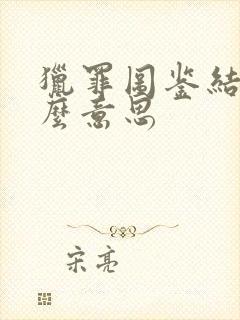 獵罪圖鉴結
麼意思
宋亮